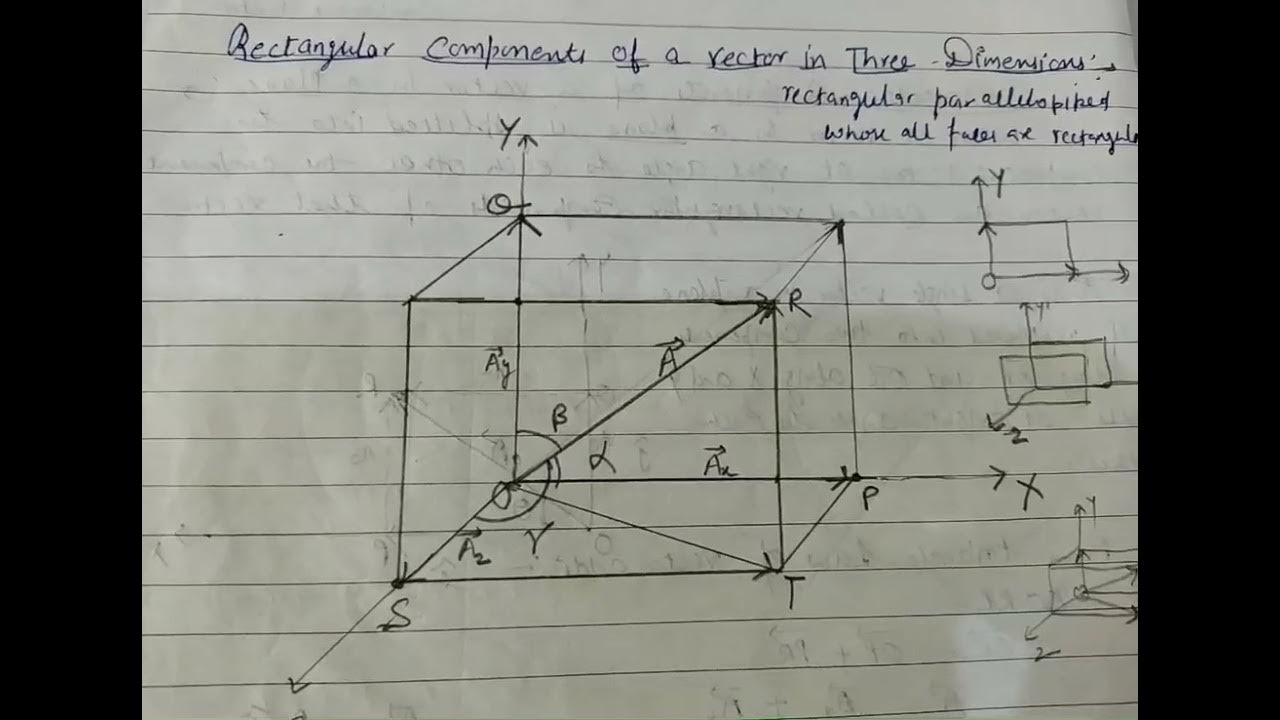 Rectangular Components of a vector in Three Dimensions:→
rectangular parallelopiped
whose all faces are rectangula
Y
Q
Y
O
R
A⃗
A⃗y
Y
β
Z
α
A⃗x
O
P
X
A⃗z
γ
Y
S
T
Z